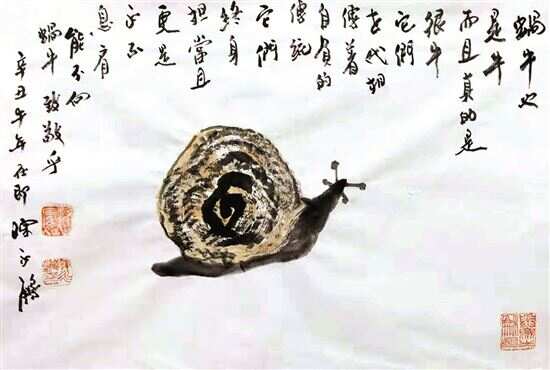 蝸牛也
是牛
而且真的是
很牛
它們
世代相
傳着
自負的
傳說
它們
終身
担當且
更是
永不
息肩
能不向
蝸牛致敬乎
辛丑牛年在即